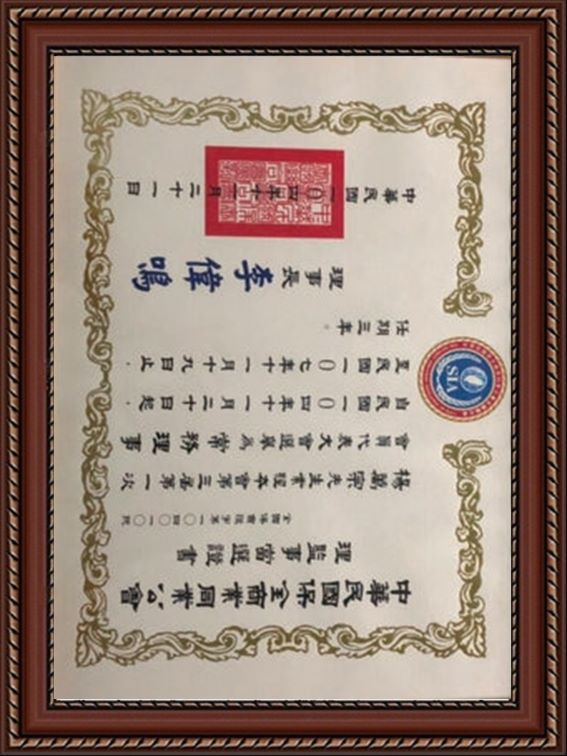 中華民國保全商業同業公會
理監事當選證書
楊 宗先生業經本會第三屆第一次
會員代表大會選舉為常務理事
自民國一〇四年十一月二十日起，
至民國一〇七年十一月十九日止，
任期三年。
理事長 李偉鳴
中華民國一〇四年十一月二十一日
SIA